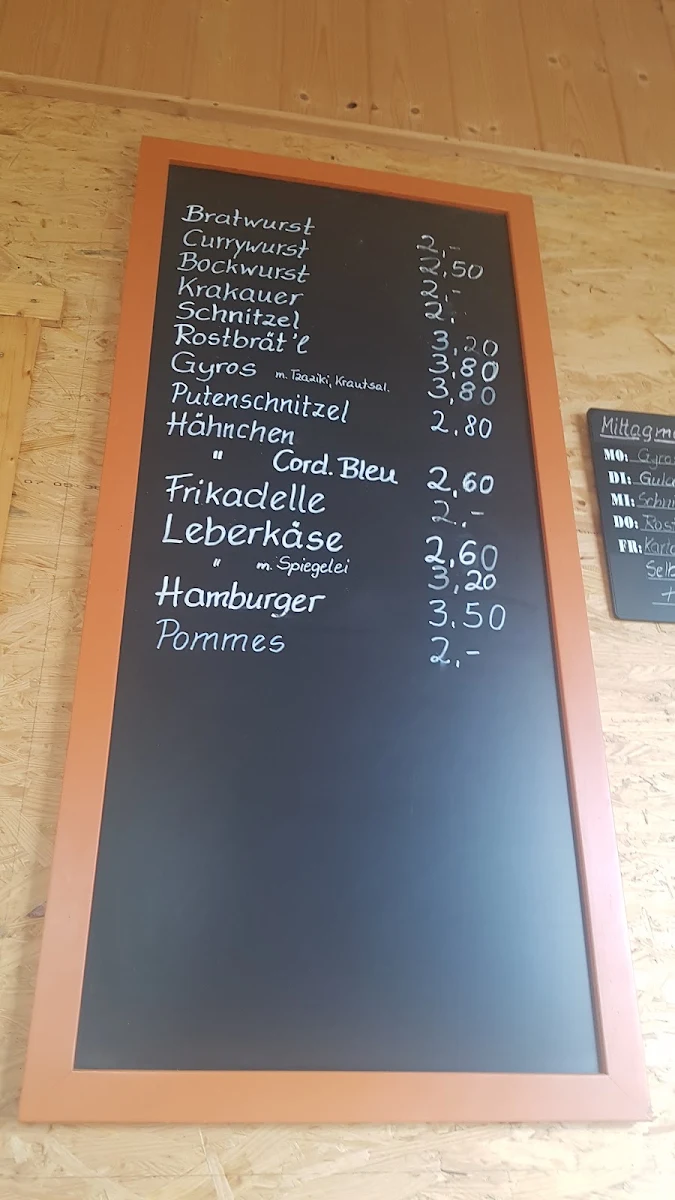 Bratwurst 2,-
Currywurst 2,50
Bockwurst 2,-
Krakauer 2,-
Schnitzel 3,20
Rostbrät'l 3,80
Gyros m. Tzaziki, Krautsal. 3,80
Putenschnitzel 2,80
Hähnchen
" Cord. Bleu 2,60
Frikadelle 2,-
Leberkäse 2,60
" m. Spiegelei 3,20
Hamburger 3,50
Pommes 2,-
Mittagm
MO: Gyro
DI: Gula
MI: Schni
DO: Rost
FR: Karto
Selb